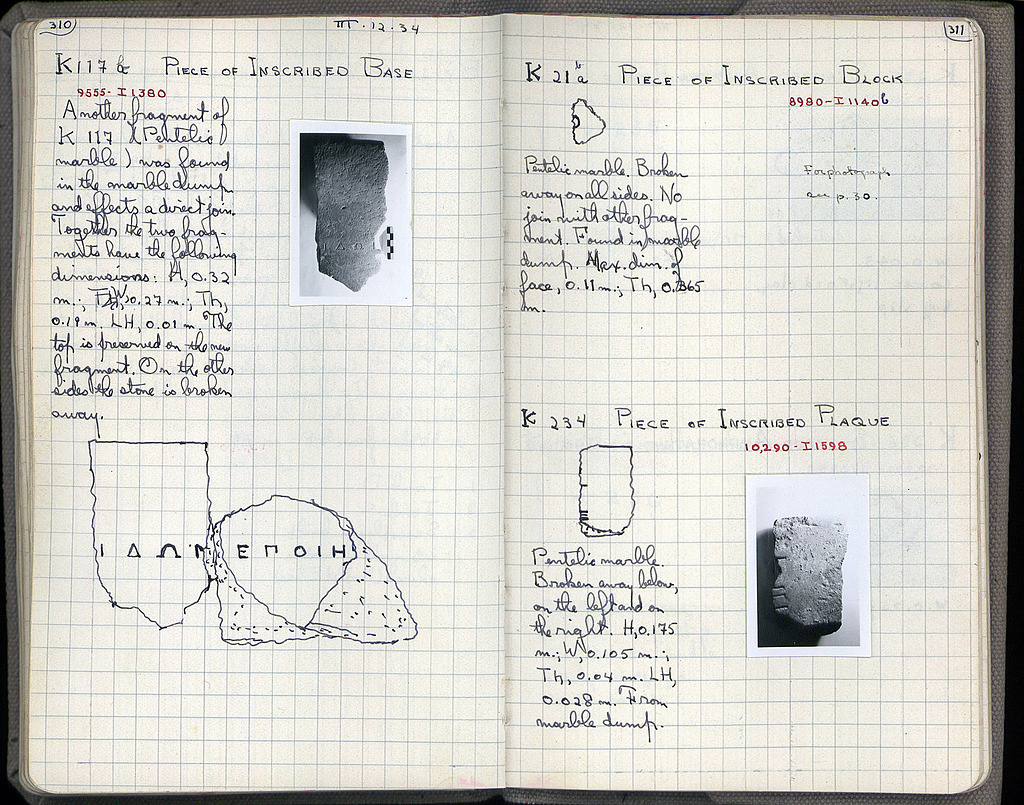 310
III.12.34
K 117 b PIECE OF INSCRIBED BASE
9555-I 1380
Another fragment of
K 117 (Pentelic
marble) was found
in the marble dump
and effects a direct join.
Together the two frag-
ments have the following
dimensions: H, 0.32
m.; W, 0.27 m.; Th,
0.19 m. LH, 0.01 m. The
top is preserved on the new
fragment. On the other
sides the stone is broken
away.
Ι Δ Ω Ν Ε Π Ο Ι Η
311
K 21 a PIECE OF INSCRIBED BLOCK
8980-I 1140b
Pentelic marble. Broken
away on all sides. No
join with other frag-
ment. Found in marble
dump. Max. dim. of
face, 0.11 m.; Th, 0.365
m.
For photograph
see p. 30.
K 234 PIECE OF INSCRIBED PLAQUE
10,290-I 1598
Pentelic marble.
Broken away below,
on the left and on
the right. H, 0.175
m.; W, 0.105 m.;
Th, 0.04 m. LH,
0.028 m. From
marble dump.